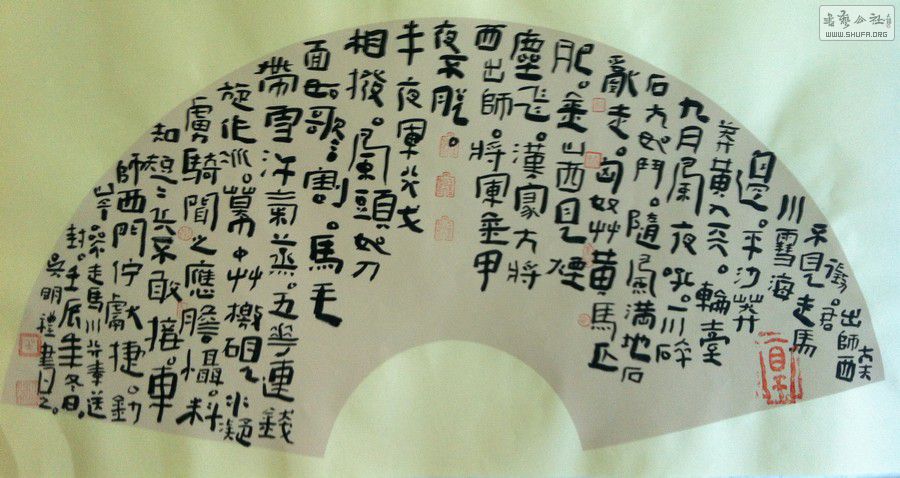 大夫
出師西
征。君
不見走馬
川雪海
邊。平沙莽
莽黃入天。輪臺
九月風夜吼。一川碎
石大如鬥。隨風滿地石
亂走。匈奴草黃馬正
肥。金山西見煙
塵飛。漢家大將
西出師。將軍金甲
夜不脫。
半夜軍行戈
相撥。風頭如刀
面如割。馬毛
帶雪汗氣蒸。五花連錢
旋作冰。幕中草檄硯水凝
虜騎聞之應膽懾。料
知短兵不敢接。車
師西門佇獻捷。
岑參走馬川行奉送
封。壬辰年冬日。
吳明禮書之。
書藝公社
WWW.SHUFA.ORG